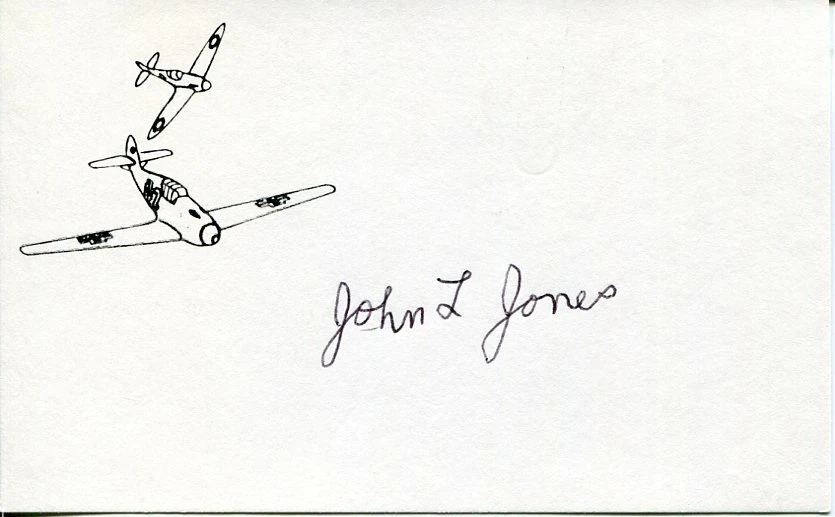 John L Jones